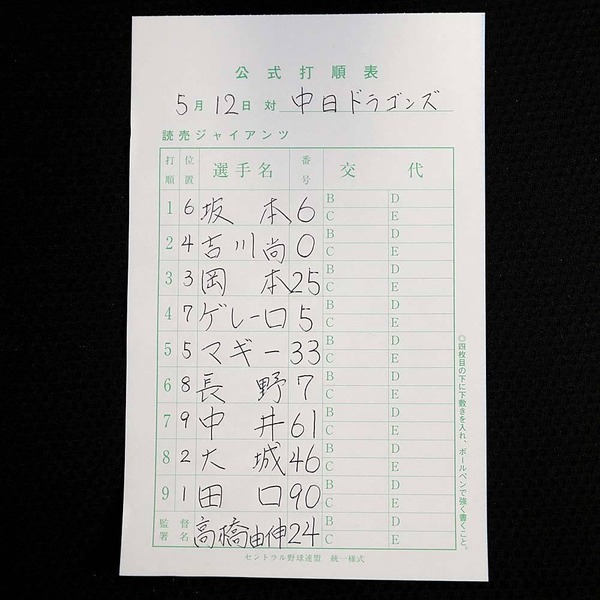 公式打順表
5月12日 対 中日ドラゴンズ
読売ジャイアンツ
打順 位置 選手名 番号 交代
1 6 坂本 6 B D C E
2 4 吉川尚 0 B D C E
3 3 岡本 25 B D C E
4 7 ゲレーロ 5 B D C E
5 5 マギー 33 B D C E
6 8 長野 7 B D C E
7 9 中井 61 B D C E
8 2 大城 46 B D C E
9 1 田口 90 B D C E
監督署名 高橋由伸 24 B D C E
セントラル野球連盟 統一様式
◎四枚目の下に下敷きを入れ、ボールペンで強く書くこと。